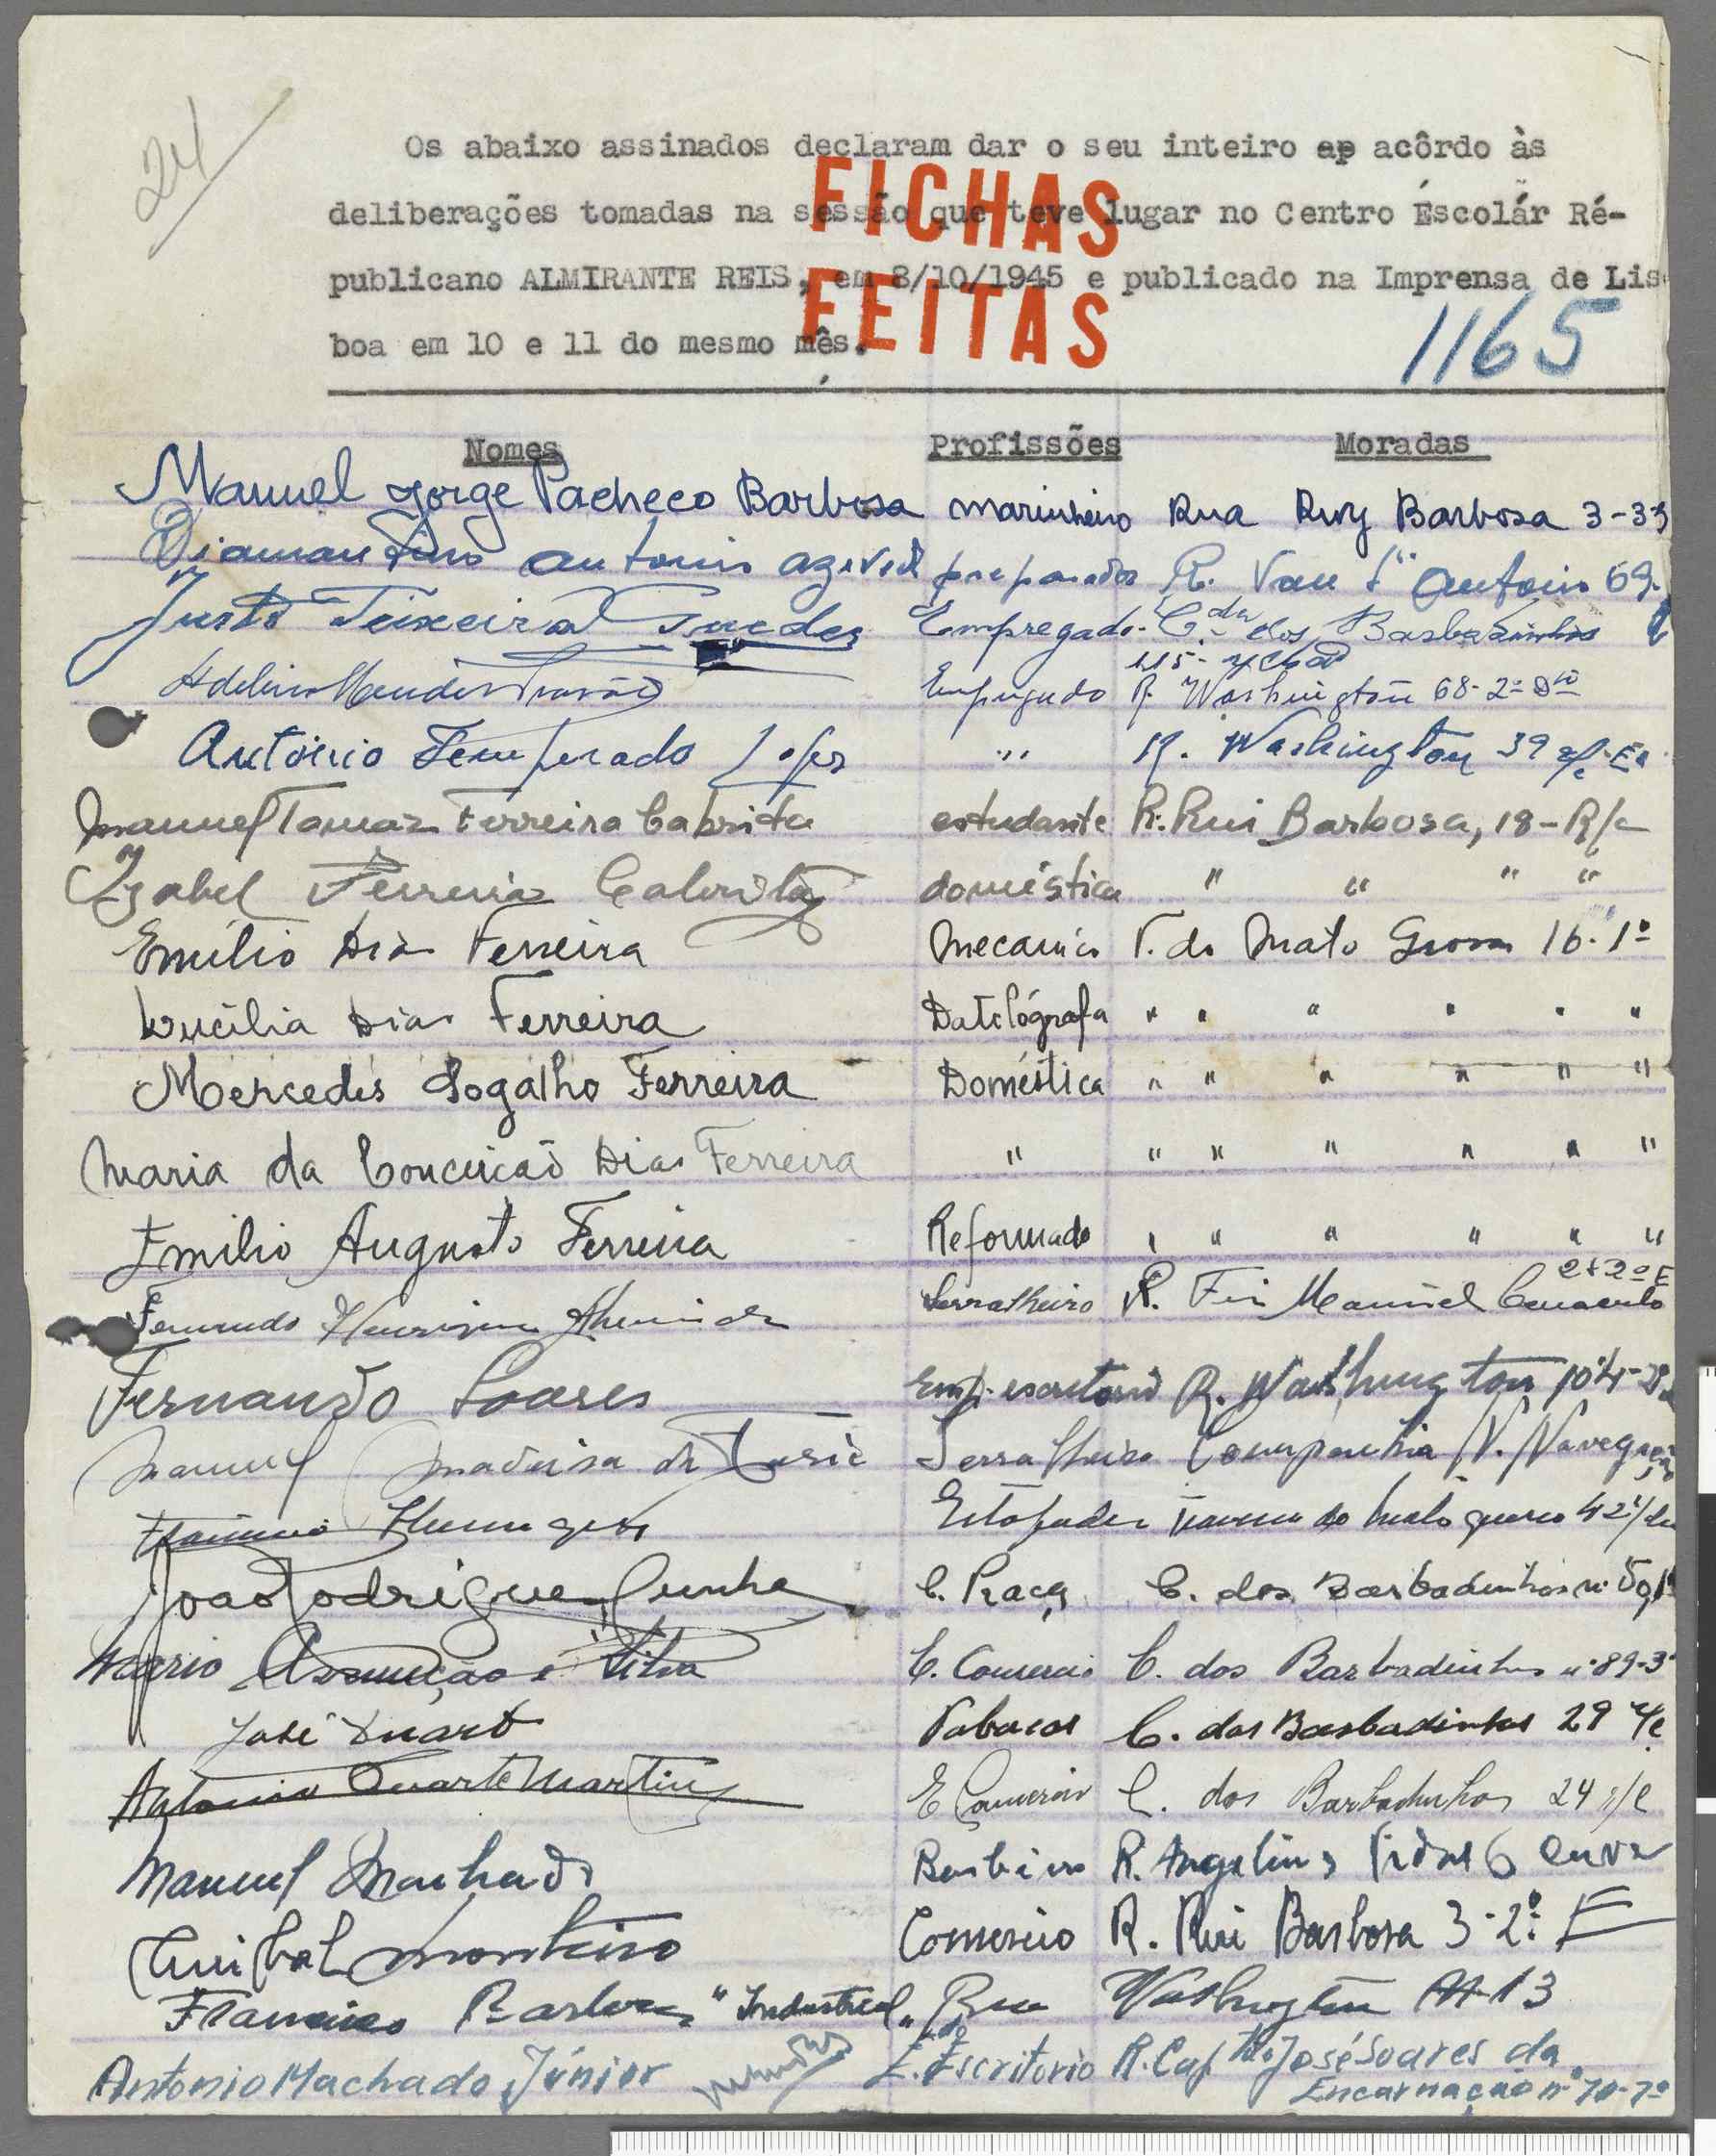 24
Os abaixo assinados declaram dar o seu inteiro ap acôrdo às
deliberações tomadas na sessão que teve lugar no Centro Éscolár Ré-
publicano ALMIRANTE REIS, em 8/10/1945 e publicado na Imprensa de Lis
boa em 10 e 11 do mesmo mês.
FICHAS
FEITAS
1165
Nomes Profissões Moradas
Manuel Jorge Pacheco Barbosa marinheiro Rua Ruy Barbosa 3-3º
Diamantino antonio azevedo preparador R. Vale Sto Antonio 69
Justo Teixeira Guedes Empregado C.da dos Barbadinhos
115-
Adelino Mendes Empregado R. Washington 68-2º Dto
António Temperado Lopes " R. Washington 39 r/c Eº
Manuel Tomaz Ferreira Cabrita estudante R. Rui Barbosa, 18-R/c
Izabel Ferreira Cabrita doméstica " " " "
Emílio Dias Ferreira Mecanico T. do Mato Grosso 16-1º
Lucília Dias Ferreira Datilógrafa " " " " " "
Mercedes Sogalho Ferreira Doméstica " " " " " "
Maria da Conceição Dias Ferreira " " " " " " "
Emilio Augusto Ferreira Reformado " " " " " "
Fernando Henrique Almeida Serralheiro R. Frei Manuel Cenaculo
2+2º E
Fernando Soares Emp. escritorio R. Washington 104-2º
Manuel Madeira Serralheiro Companhia N. Navegação
Estofador Travessa do Mato grosso 42
João Rodrigues Cunha C. Praça C. dos Barbadinhos nº
Mario Assunção e Silva E. Comercio C. dos Barbadinhos nº 89-3º
José Duarte Tabacos C. dos Barbadinhos 29 r/c
Antonio Duarte Martins E Comercio C. dos Barbadinhos 24 r/c
Manuel Machado Barbeiro R. Angelina Vidal 6 cave
Anibal Monteiro Comercio R. Rui Barbosa 3-2º E
Francisco Barbosa "Industrial" Rua Washington 13
Antonio Machado Júnior E.do Escritorio R. Cap. José Soares da
Encarnação nº 70-7º